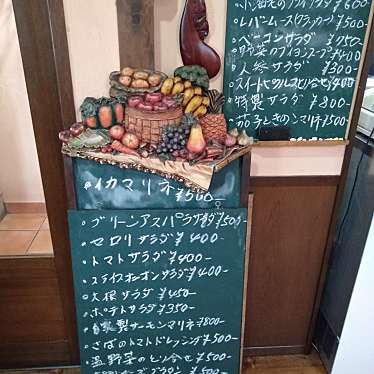 小海老のフライサラダ ¥600
レバームース(クラッカー) ¥500-
ベーコンサラダ ¥750-
野菜のブイヨンスープ ¥400
人参サラダ ¥300-
スイートピクルス盛合せ ¥400
特製サラダ ¥800-
茄子ときのこのマリネ ¥500
イカマリネ ¥500-
グリーンアスパラサラダ ¥500-
セロリサラダ ¥400-
トマトサラダ ¥400-
スライスオニオンサラダ ¥400-
大根サラダ ¥450-
ポテトサラダ ¥350-
自家製サーモンマリネ ¥800-
さばのトマトドレッシング ¥500
温野菜の七ツ合せ ¥500